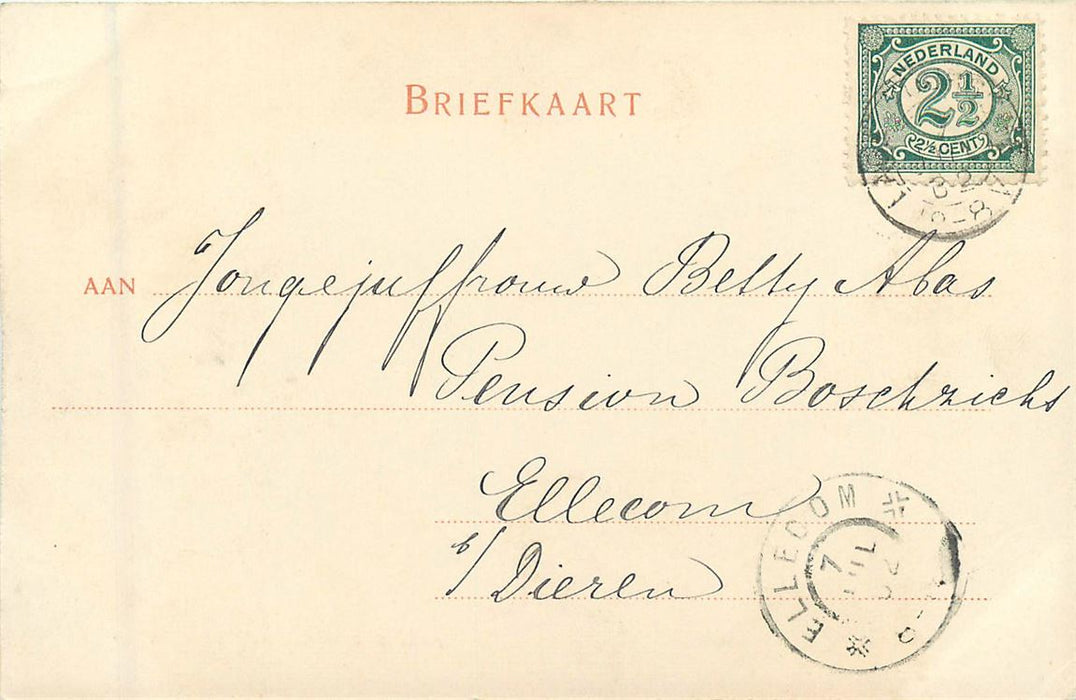 BRIEFKAART
NEDERLAND
2½
2½ CENT
AAN Jongejuffrouw Betty Abas
Pension Boschzicht
Ellecom
b/ Dieren
ELLECOM
7